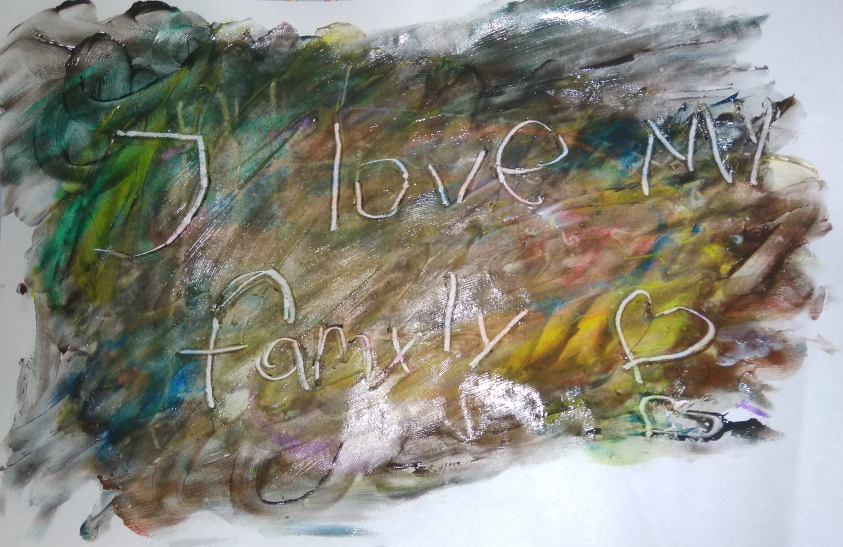 I love MY
family ♡